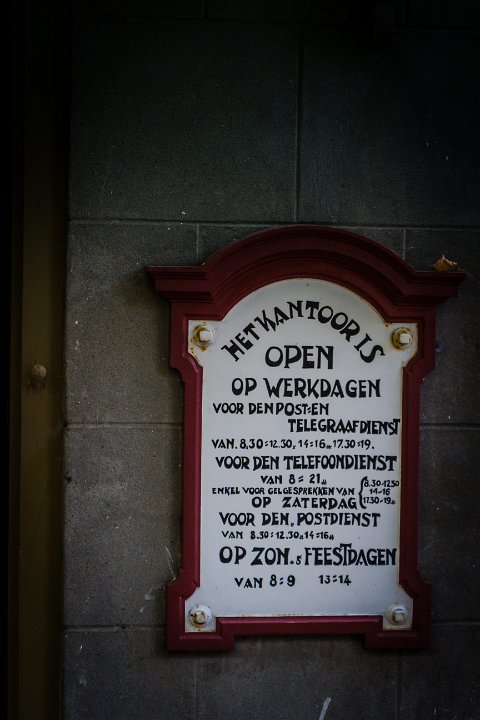 HET KANTOOR IS
OPEN
OP WERKDAGEN
VOOR DEN POST= EN
TELEGRAAFDIENST
VAN. 8.30=12.30. 14=16„ 17.30=19.
VOOR DEN TELEFOONDIENST
VAN 8= 21„
ENKEL VOOR GELGESPREKKEN VAN { 8.30-12.30
14-16
17.30=19„
OP ZATERDAG
VOOR DEN„ POSTDIENST
VAN 8.30=12.30„ 14=16„
OP ZON„ & FEESTDAGEN
VAN 8=9 13=14